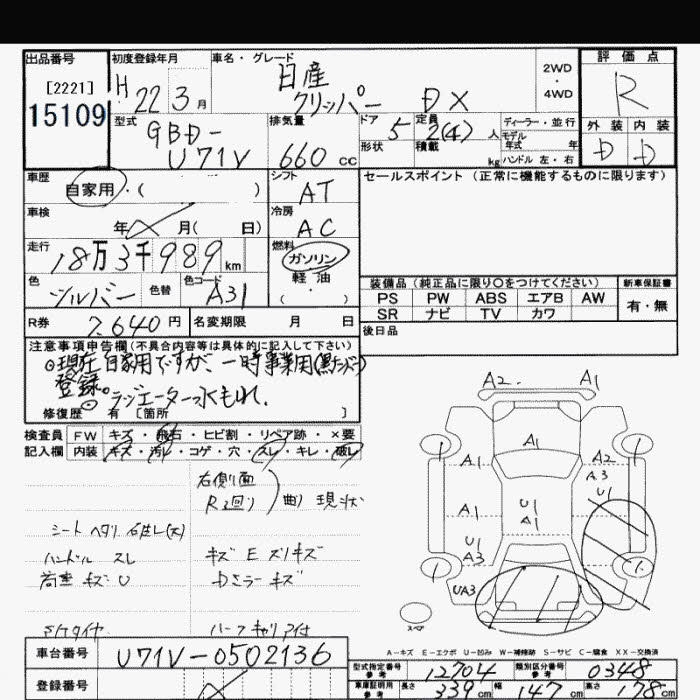 出品番号 初度登録年月 車名・グレード 2WD・4WD 評価点
[2221] H22年3月 日産 R
15109 クリッパー DX 外装 内装
型式 GBD-U71V 排気量 660cc ドア 5 定員 2(4)人 ディーラー・並行 D D
形状 積載 kg モデル年式 年
ハンドル 左・右
車歴 自家用・( ) シフト AT セールスポイント(正常に機能するものに限ります)
車検 年 月( 日) 冷房 AC
走行 18万3千989km 燃料 ガソリン
軽油・( )
色 シルバー 色替 色コード A31 装備品(純正品に限り〇をつけてください) 新車保証書
PS PW ABS エアB AW 有・無
R券 7,640円 名変期限 月 日 SR ナビ TV カワ
注意事項申告欄(不具合内容等は具体的に記入して下さい) 後日品
現在自家用ですが、一時事業用(黒ナンバー)
登録。
ラジエーター水もれ。
修復歴 有 [箇所 ]
検査員 FW キズ・飛石・ヒビ割・リペア跡・×要
記入欄 内装 キズ・汚レ・コゲ・穴・スレ・キレ・破レ
右側面
R廻り 曲り 現状
シート ヘタリ
ハンドル スレ キズ E スリキズ
荷室 キズ U Dミラー キズ
A2 A1
A1
A1 A2
A3
U1
A1 U1
A1
U1
A3
UA3
スペア
A-キズ E-エクボ U-凹み W-補修跡 S-サビ C-腐食 XX-交換済
車台番号 U71V-0502136
型式指定番号 参考 12704 類別区分番号 参考 0348
登録番号
車庫証明用 参考 長さ 339cm 幅 147cm 高さ 78cm